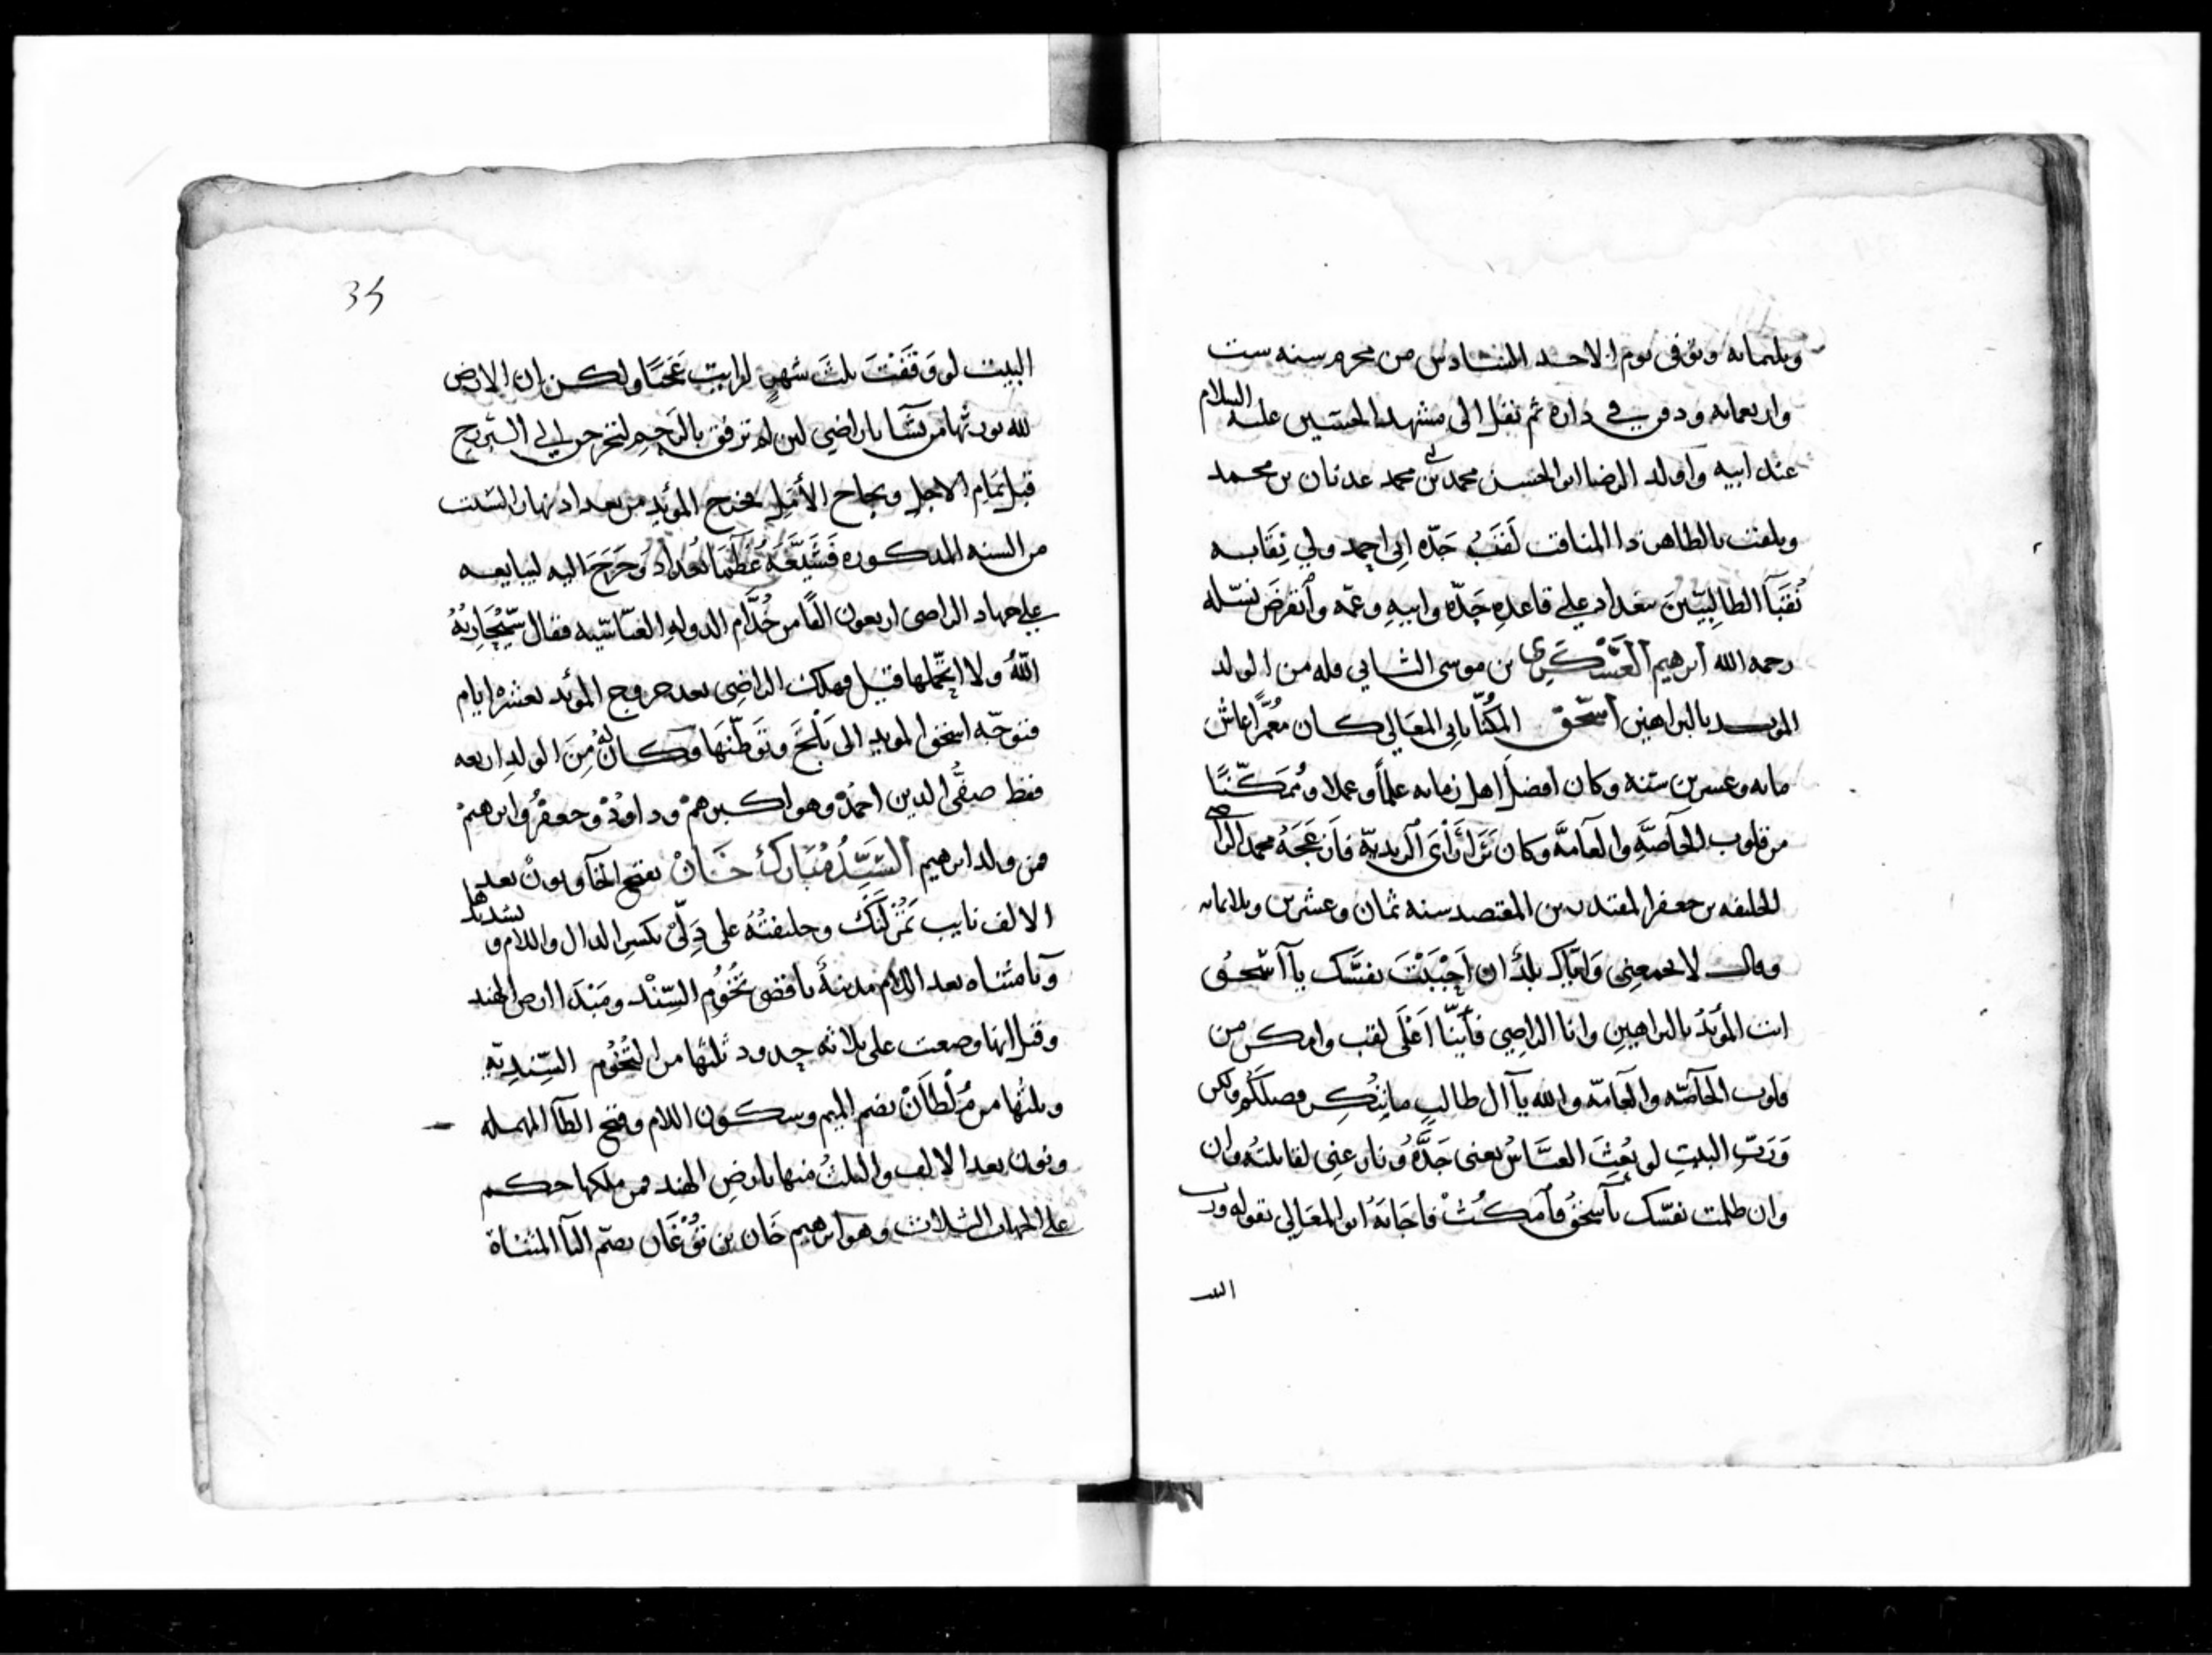 وثلثمايه وتوفي يوم الاحد السادس من محرم سنه ست
واربعمايه ودفن في داره ثم نقل الى مشهد الحسين عليه السلام
عند ابيه واولد الرضا ابو الحسن محمد بن محمد عدنان بن محمد
ويلقب بالطاهر ذا المناقب لقب جَدّه ابي احمد ولي نِقَابه
نُقبَآ الطالِبيّينَ ببغداد على قاعدهِ جَدّه وابيهِ وعمّه وٱنقرضَ نسّله
رحمه الله ابرهيم العَسْكَرِى بن موسى الثاني فله من الولد
المويد بالبراهين اسّحق المكُنّا بابي المعَالي كان مُعمَّرًا عاش
مايه وعسرين سَنه وكان افضل اهل زمانه علمًا وعملا ومُمَكَّنًا
من قلوب الخآصَّهِ والعآمَّه وكان يَرَا رَأىَ الزيديّه فازعَجَهُ محمد الراضى
الخليفه بن جعفر المقتدر بن المعتضد سنه ثمان وعشرين وثلاثمايه
وقال لا يجمعنِي وَاِيّاك بلدٌ ان اَحْبَبْتَ نفسَّك يآ اسّحق
انت المؤيدُ بالبراهينِ وانا الراضِي فأيّنا اَعْلَى لقب وامكن من
قلوب الخآصّه والعآمّه والله يآ ال طالبٍ ما نِنُكِر فضلَكُم ولكن
وَرَبِّ البيتِ لو بُعِثَ العبَّاسُ يعنى جَدَّهُ ونازعنِى لقاتلتُه وان
وان ظلمت نفسّك يآ سحقُ فٱمكُثْ فاجَابَهُ ابو المعَالي بقوله ورب
البيت
34
البيت لو وَقَفْتَ ثلثَ شهرٍ لرايتَ عَجَبًا ولكن ان الارض
لله يورثها من يشآ يا راضي لين لم ترفق بالرَحِمِ لتخرجن الى الضريح
قبل تمام الاجل ونجاح الأمَلِ فخرج المؤيد من بغداد نهار السّبت
من السنه المذكوره فَشَيَّعَهُ عُظَمَا بغداد وَخَرَجَ اليه ليبايعه
على جهاد الراضى اربعون الفًا من خُدَّام الدولهِ العبّاسّيه فقال سّيُجَازِيهُ
اللّهُ ولا اتحّملها قيل فهلك الراضِى بعد خروج المؤيد بعشره ايام
فتوجّه اسحق المويد الى بَلْخَ وتَوَطّنَهَا وكان لَهُ مِنَ الولدِ اربعه
فقط صفىُّ الدين احمدُ وهو اكبرهمْ وداوُدْ وجعفرْ وابرهيمْ
فمن ولد ابرهيم السَّيِّدُ مُبَارك خَانْ بفتح الخآ ونونْ بعد
الالف نايب تَمُرْلَنْكَ وخليفتُهُ على دِلّى بكسر الدال واللام وتشديدها
ويآ مثناه بعد اللام مدينهٌ باقصى تُخُومِ السّنْد ومَبْدَا ارض الهند
وقيل انها وضعت على ثلاثه حدود ثلثها من التُخُوم السّندِيهِ
وثلثُها من مُلْطَانْ بضم الميم وسكون اللام وفتح الطآ المهمله
ونون بعد الالف والثلثُ منها بارضِ الهند فمن ملكها حكم
على الجهات الثلاث وهو ابرهيم خَان بن تُوْغَان بضم التآ المثناة